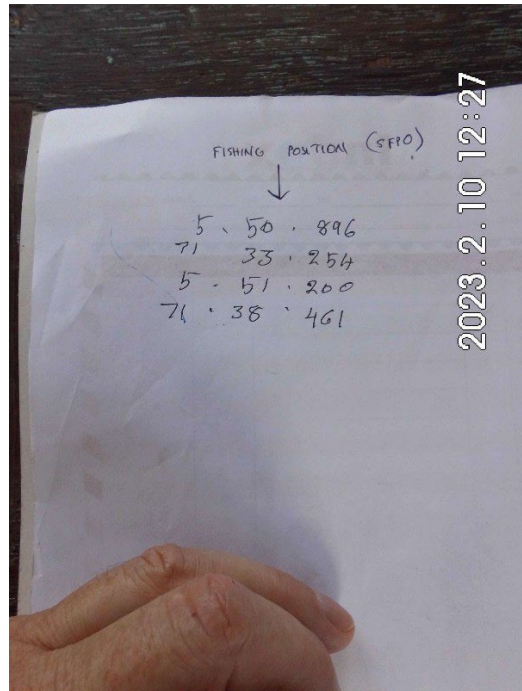 FISHING POSITION (SFPO)
5 . 50 . 896
71 33 . 254
5 . 51 . 200
71 . 38 . 461
2023.2.10 12:27